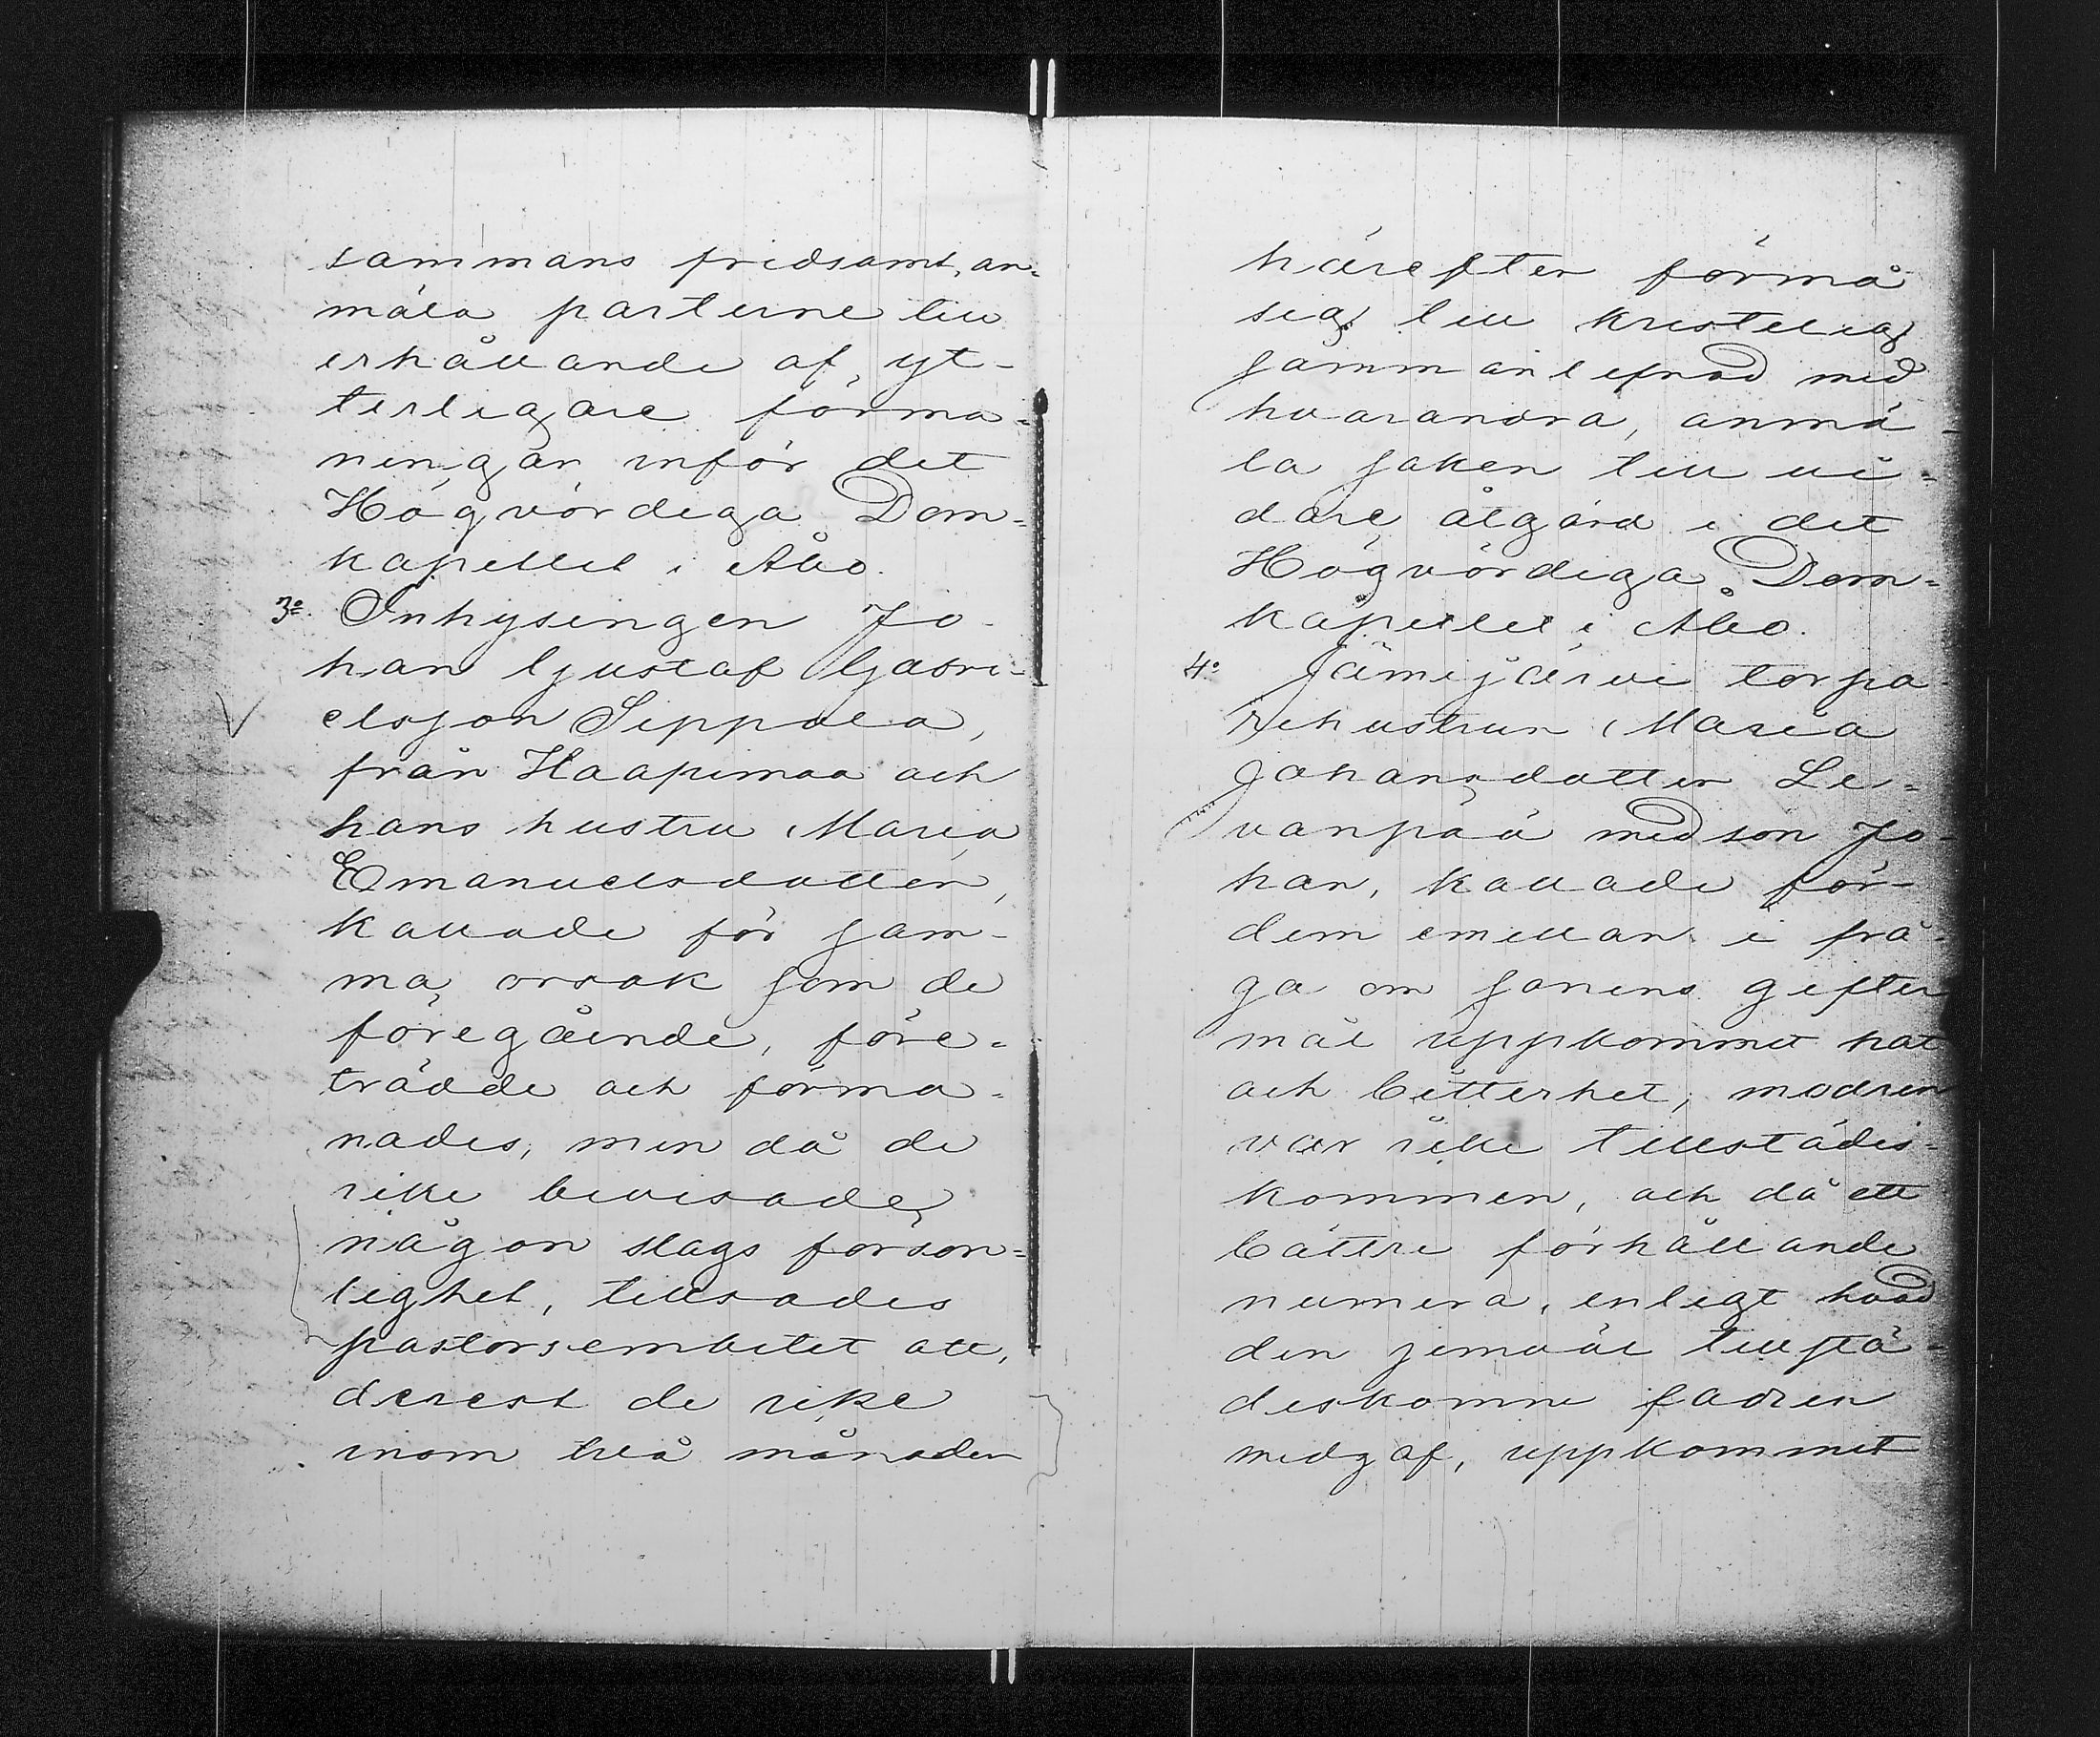 sammans fridsamt, an-
mäla parterne till
erhållande af yt-
terligare förma-
ningar inför det
Högvördiga Dom-
kapitlet i Åbo.
3o. Inhysingen Jo-
han Gustaf Gabri-
elsson Seppälä,
från Haapimaa och
hans hustru Maria
Emanuelsdotter,
kallade för sam-
ma orsak som de
föregående, före-
trädde och förma-
nades, men då de
icke bevisade
någon slags förson-
lighet, tillsades
pastorsembetet att,
derest de icke
inom två månader
härefter förmå
sig till kristelig
sammanlefnad med
hvarandra, anmä-
la saken till vi-
dare åtgärd i det
Högvördiga Dom-
kapitlet i Åbo.
4o Jämijärvi torpa-
rehustrun Maria
Johansdotter Le-
vänpää med son Jo-
han, kallade för
dem emellan i frå-
ga om sonens gifter
mål uppkommet hat
och bitterhet; modren
var icke tillstädes-
kommen, och då ett
bättre förhållande
numera, enligt hvad
den jemväl tillstä-
deskomne fadren
medgaf, uppkommit